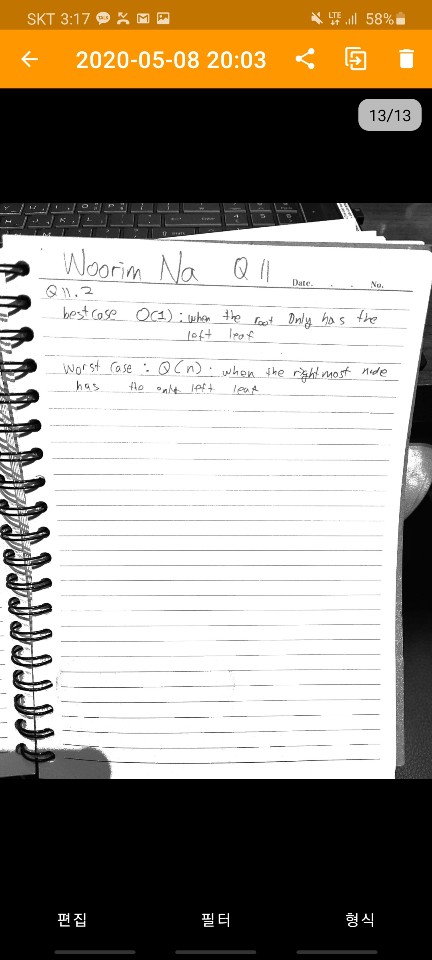 SKT 3:17
LTE
58%
2020-05-08 20:03
13/13
Woorim Na Q 11
Date. . . No.
Q 11.2
best case O(1) : when the root Only has the
left leaf
Worst case : O(n) . when the rightmost node
has the only left leaf
편집 필터 형식